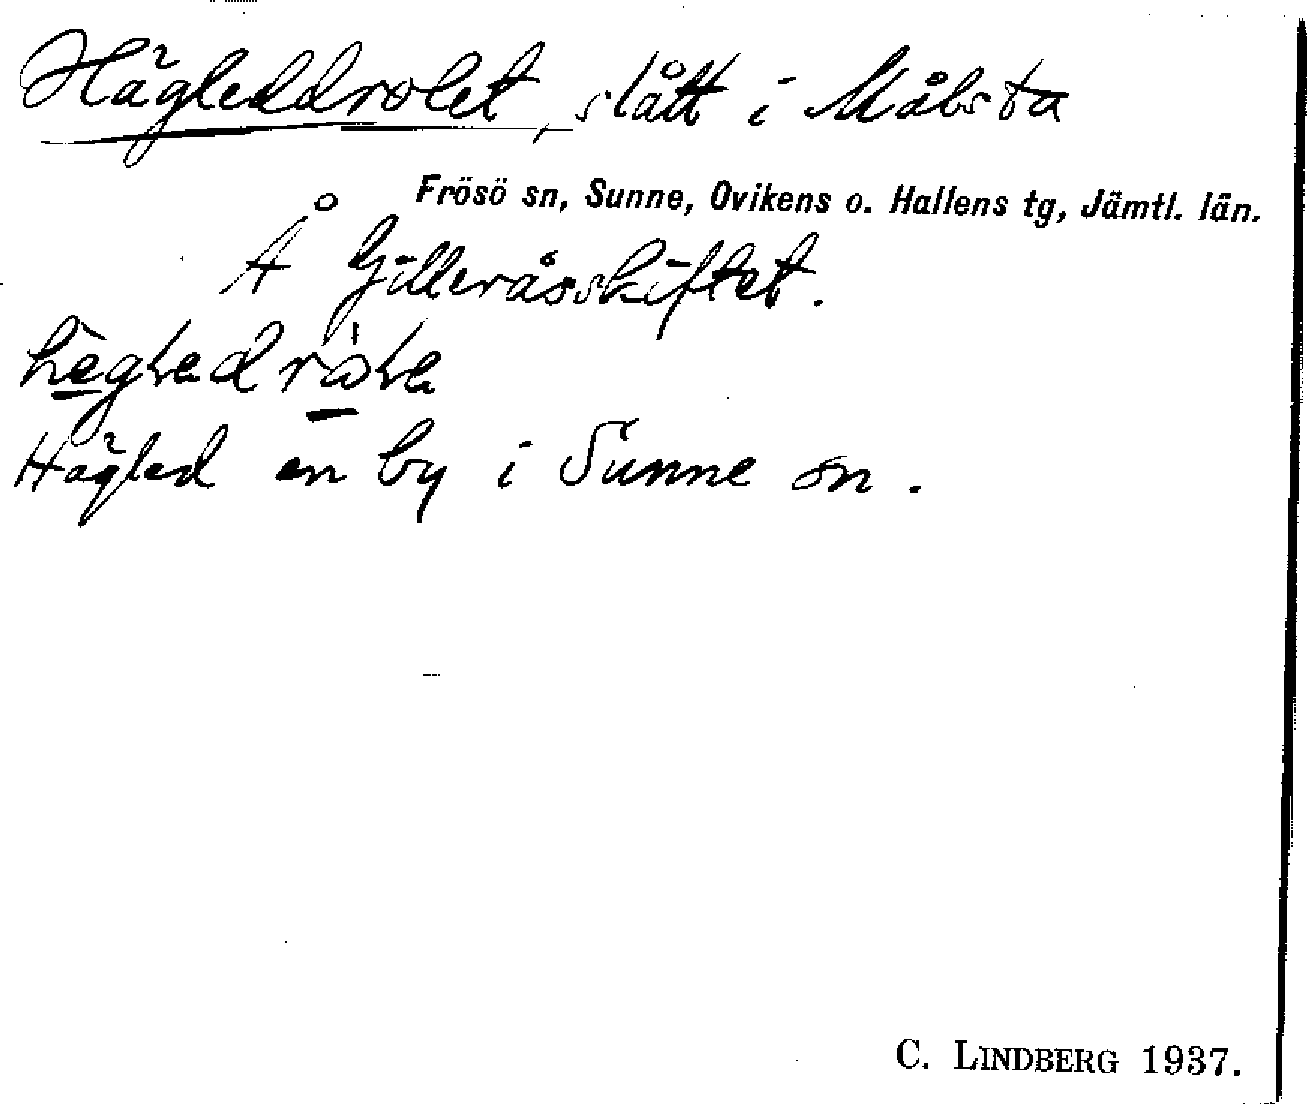 Hägleddrolet, slått i Målsta
Frösö sn, Sunne, Ovikens o. Hallens tg, Jämtl. län.
Å Gilleråsskiftet.
Hägled en by i Sunne sn.
C. LINDBERG 1937.